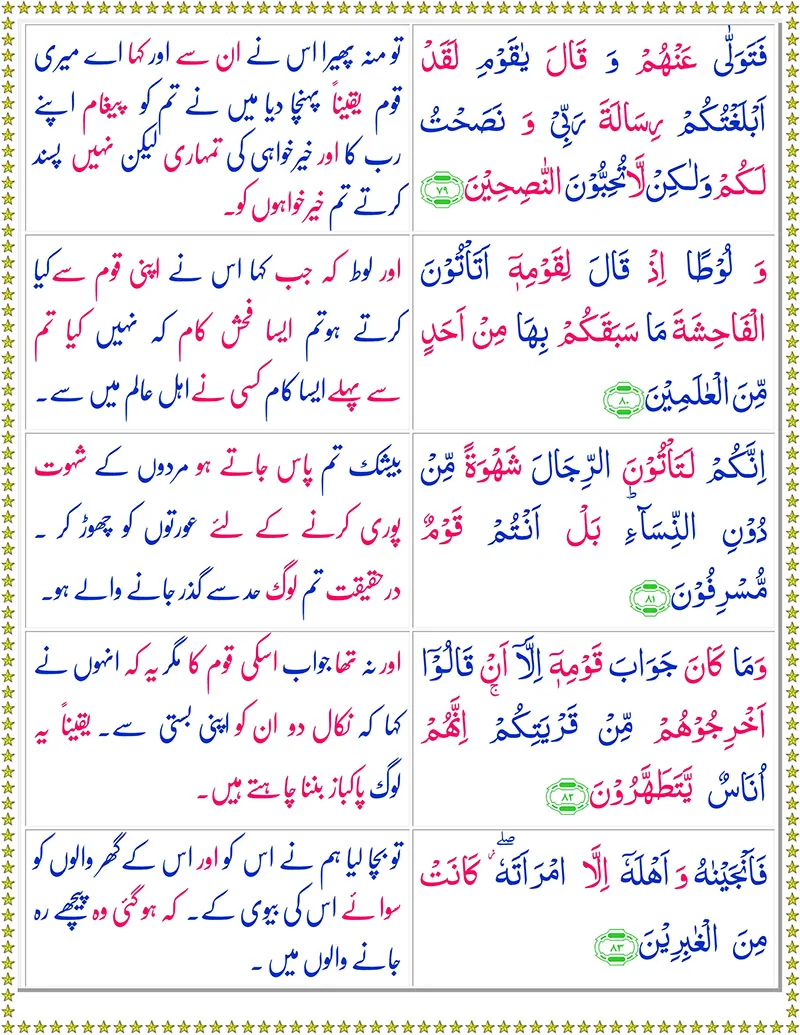 فَتَوَلّٰى عَنْهُمْ وَ قَالَ يٰقَوْمِ لَقَدْ
اَبْلَغْتُكُمْ رِسَالَةَ رَبِّيْ وَ نَصَحْتُ
لَكُمْ وَلٰكِنْ لَّا تُحِبُّوْنَ النّٰصِحِيْنَ ۷۹
تو منہ پھیرا اس نے ان سے اور کہا اے میری
قوم یقیناً پہنچا دیا میں نے تم کو پیغام اپنے
رب کا اور خیرخواہی کی تمہاری لیکن نہیں پسند
کرتے تم خیرخواہوں کو۔
وَ لُوْطًا اِذْ قَالَ لِقَوْمِهٖۤ اَتَاْتُوْنَ
الْفَاحِشَةَ مَا سَبَقَكُمْ بِهَا مِنْ اَحَدٍ
مِّنَ الْعٰلَمِيْنَ ۸۰
اور لوط کہ جب کہا اس نے اپنی قوم سے کیا
کرتے ہوتم ایسا فحش کام کہ نہیں کیا تم
سے پہلے ایسا کام کسی نے اہل عالم میں سے۔
اِنَّكُمْ لَتَاْتُوْنَ الرِّجَالَ شَهْوَةً مِّنْ
دُوْنِ النِّسَآءِ ؕ بَلْ اَنْتُمْ قَوْمٌ
مُّسْرِفُوْنَ ۸۱
بیشک تم پاس جاتے ہو مردوں کے شہوت
پوری کرنے کے لئے عورتوں کو چھوڑ کر ۔
درحقیقت تم لوگ حد سے گذر جانے والے ہو۔
وَمَا كَانَ جَوَابَ قَوْمِهٖۤ اِلَّاۤ اَنْ قَالُوْۤا
اَخْرِجُوْهُمْ مِّنْ قَرْيَتِكُمْ ۚ اِنَّهُمْ
اُنَاسٌ يَّتَطَهَّرُوْنَ ۸۲
اور نہ تھا جواب اسکی قوم کا مگر یہ کہ انہوں نے
کہا کہ نکال دو ان کو اپنی بستی سے۔ یقیناً یہ
لوگ پاکباز بننا چاہتے ہیں۔
فَاَنْجَيْنٰهُ وَ اَهْلَهٗۤ اِلَّا امْرَاَتَهٗ ۖ كَانَتْ
مِنَ الْغٰبِرِيْنَ ۸۳
تو بچا لیا ہم نے اس کو اور اس کے گھر والوں کو
سوائے اس کی بیوی کے۔ کہ ہوگئی وہ پیچھے رہ
جانے والوں میں ۔